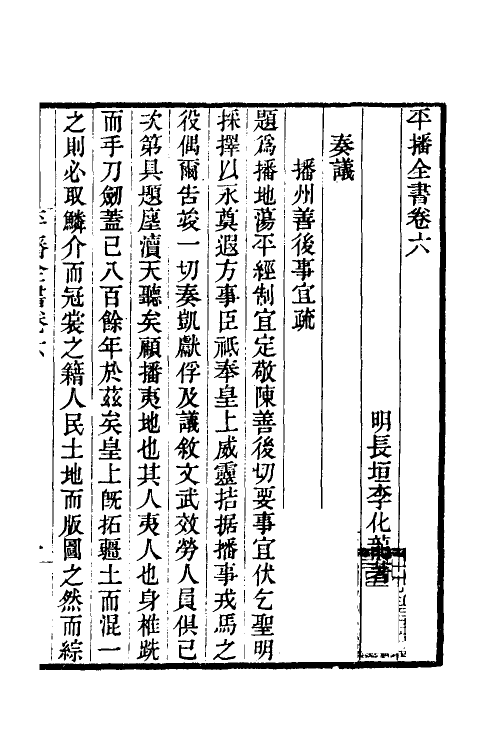 平播全書卷六
明長垣李化龍著
奏議
播州善後事宜疏
題爲播地蕩平經制宜定敬陳善後切要事宜伏乞聖明
採擇以永奠遐方事臣祇奉皇上威靈拮据播事戎馬之
役偶爾告竣一切奏凱獻俘及議敘文武效勞人員俱已
次第具題塵瀆天聽矣顧播夷地也其人夷人也身椎跣
而手刀劒蓋已八百餘年於茲矣皇上旣拓疆土而混一
之則必取鱗介而冠裳之籍人民土地而版圖之然而綜
平播全書卷六
一